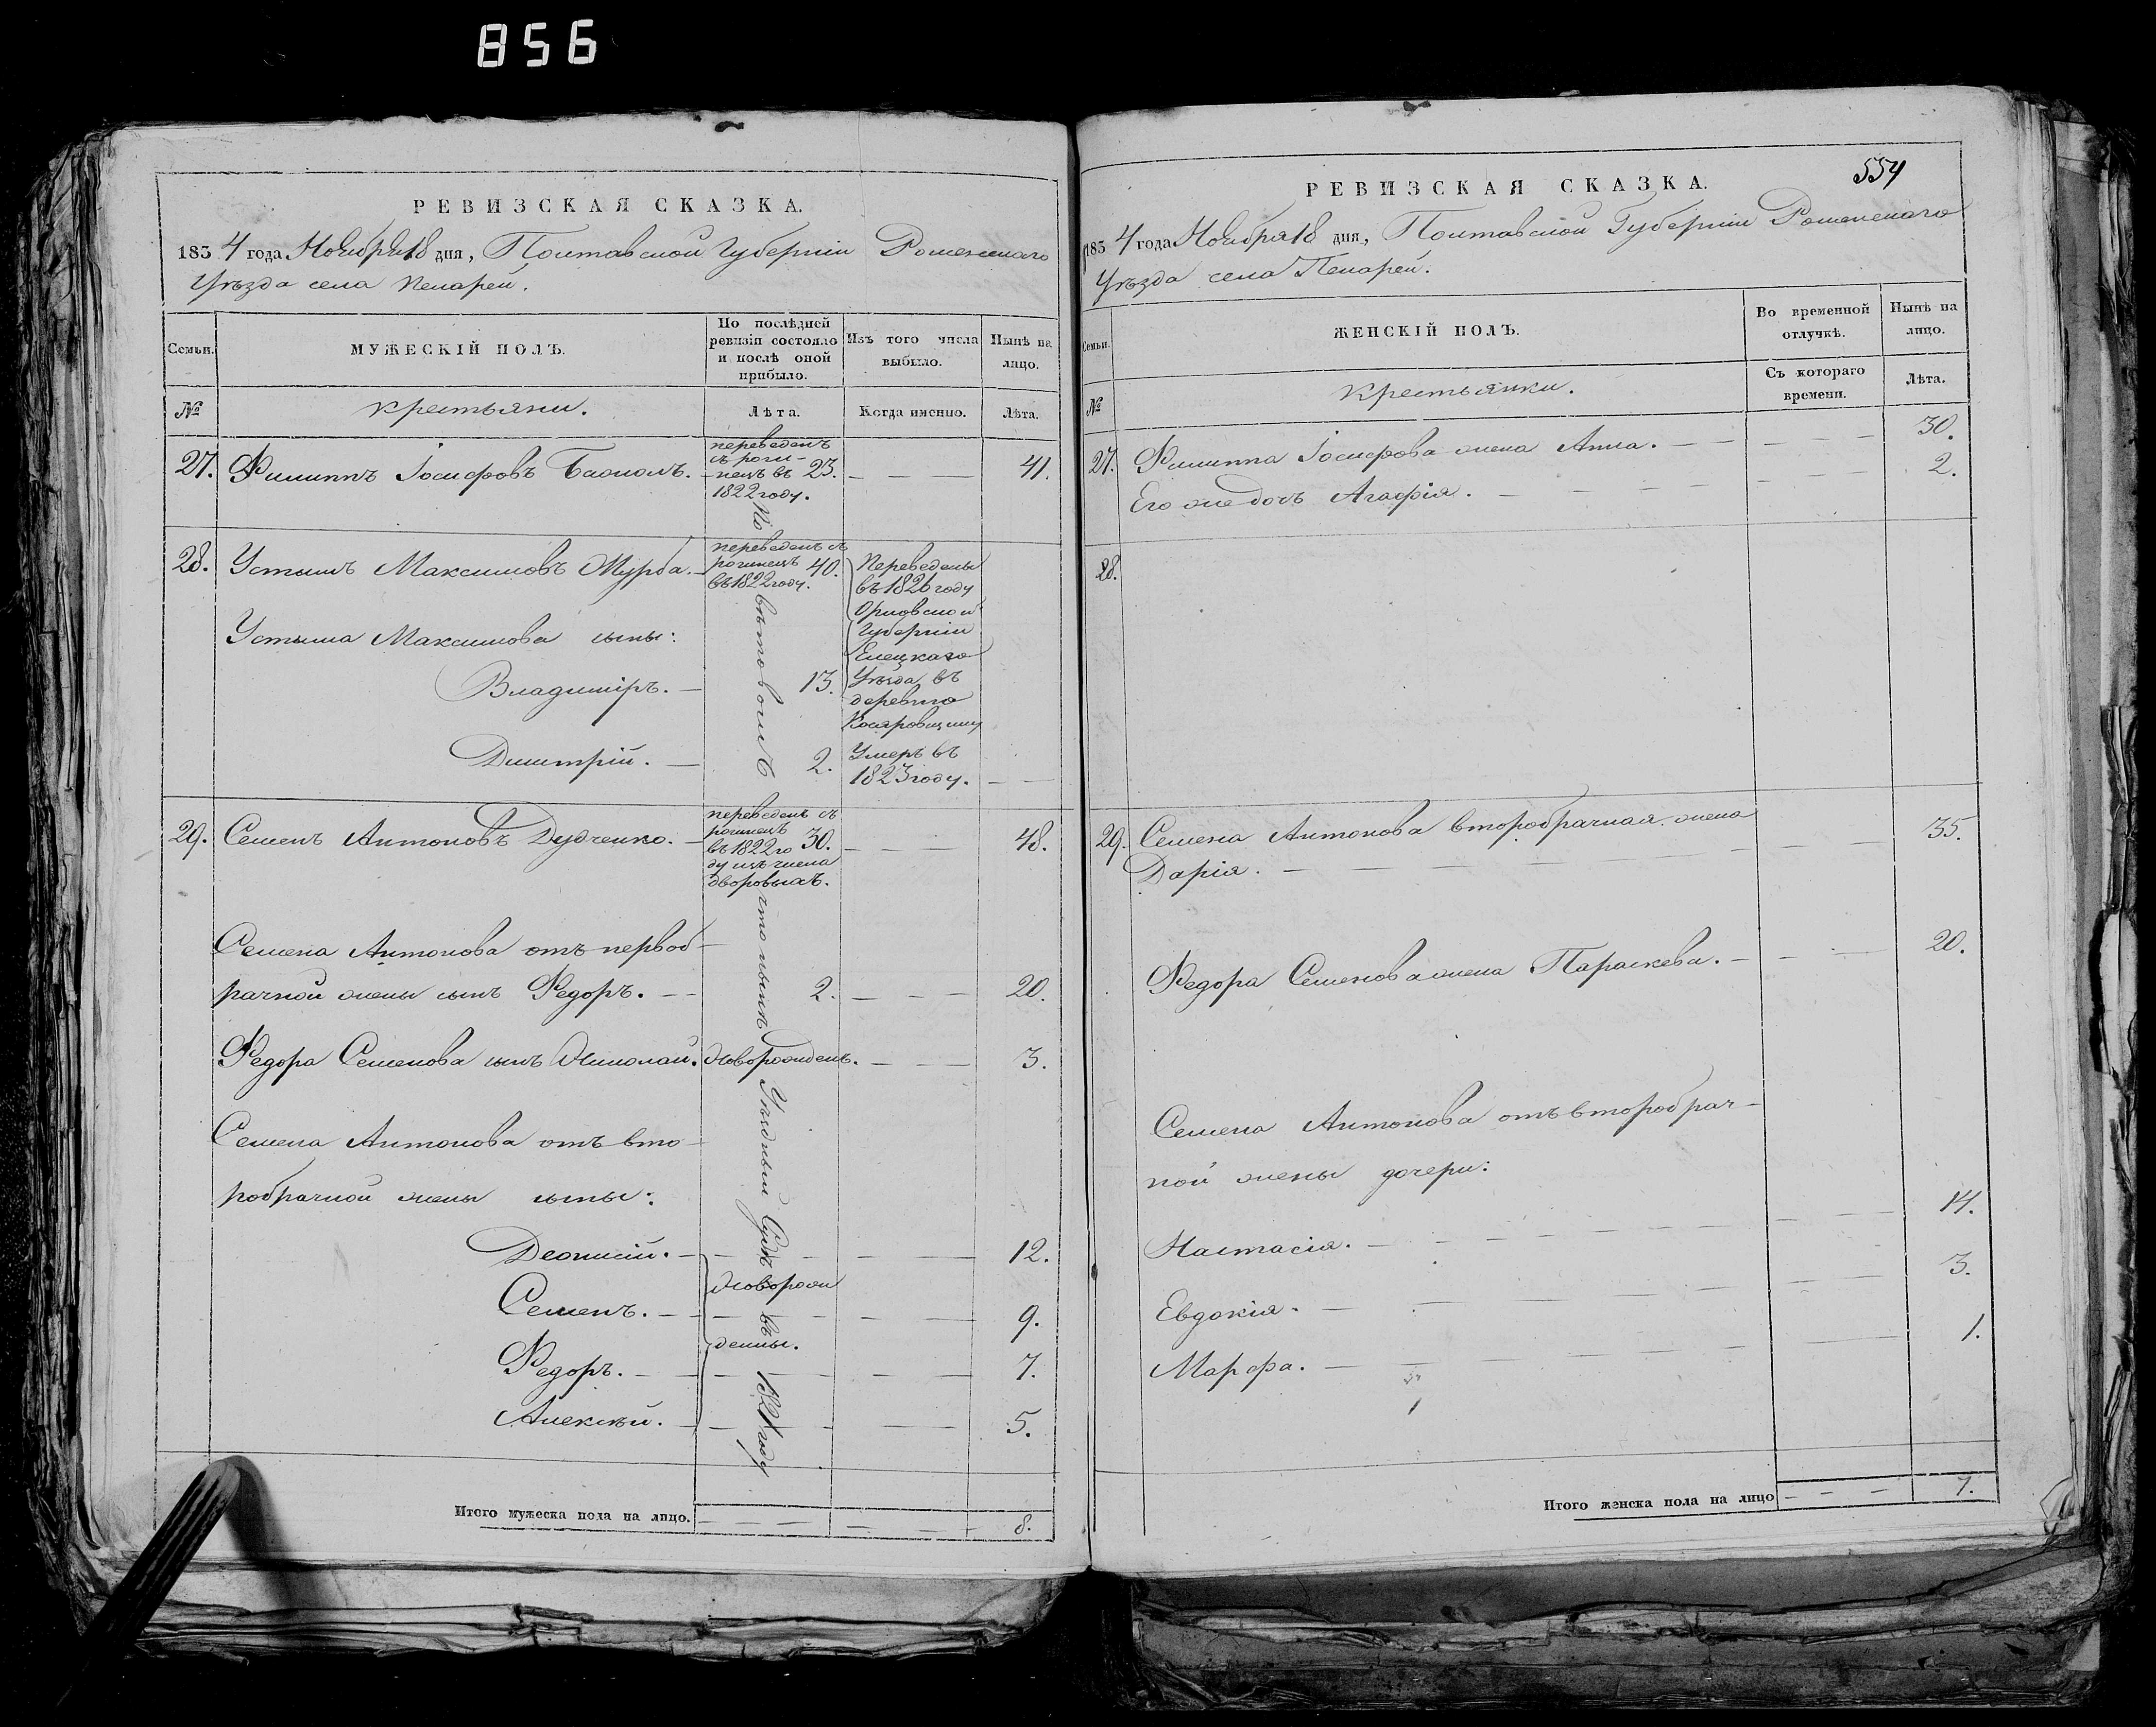 856
РЕВИЗСКАЯ СКАЗКА.
1834 года Ноября 18 дня, Полтавской Губернiи Роменскаго
Уѣзда села Пекарей.
Семьи.
МУЖЕСКIЙ ПОЛЪ.
По послѣдней ревизiи состояло и послѣ оной прибыло.
Изъ того числа выбыло.
Нынѣ на лицо.
№
крестьяни.
Лѣта.
Когда именно.
Лѣта.
27. Филиппъ Iосифовъ
переведенъ
въ 23.
1822 году.
41.
28. Устимъ Максимовъ Журба.
переведенъ съ
40.
въ 1822 году.
Переведены
въ 1826 году
Орловской
Губернiи
Елецкаго
Уѣзда въ
деревню
Устима Максимова сыны:
Владимiръ. 13.
Дмитрiй. 2.
Умеръ въ
1823 году.
29. Семенъ Антоновъ Дудченко.
переведенъ съ
30.
въ 1822 го
ду изъ числа
дворовыхъ.
48.
Семена Антонова отъ первоб-
рачной жены сынъ Федоръ. 2. 20.
Федора Семенова сынъ Николай. Новорожденъ. 3.
Семена Антонова отъ вто-
робрачной жены сыны:
Деонисiй. 12.
Новорож
Семенъ. 9.
денны.
Федоръ. 7.
Алексѣй. 5.
что нынѣ Уѣздный Судъ въ 1821 году
Итого мужеска пола на лицо. 8.
554
РЕВИЗСКАЯ СКАЗКА.
1834 года Ноября 18 дня, Полтавской Губернiи Роменскаго
Уѣзда села Пекарей.
Семьи.
ЖЕНСКIЙ ПОЛЪ.
Во временной отлучкѣ.
Нынѣ на лицо.
№
крестьянки.
Съ котораго времени.
Лѣта.
27. Филиппа Iосифова жена Анна. 30.
Его же дочь Агафiя. 2.
28.
29. Семена Антонова второбрачная жена 35.
Дарiя.
Федора Семенова жена Параскева. 20.
Семена Антонова отъ второбрач-
ной жены дочери:
Настасiя. 14.
Евдокiя. 3.
Марфа. 1.
Итого женска пола на лицо 7.